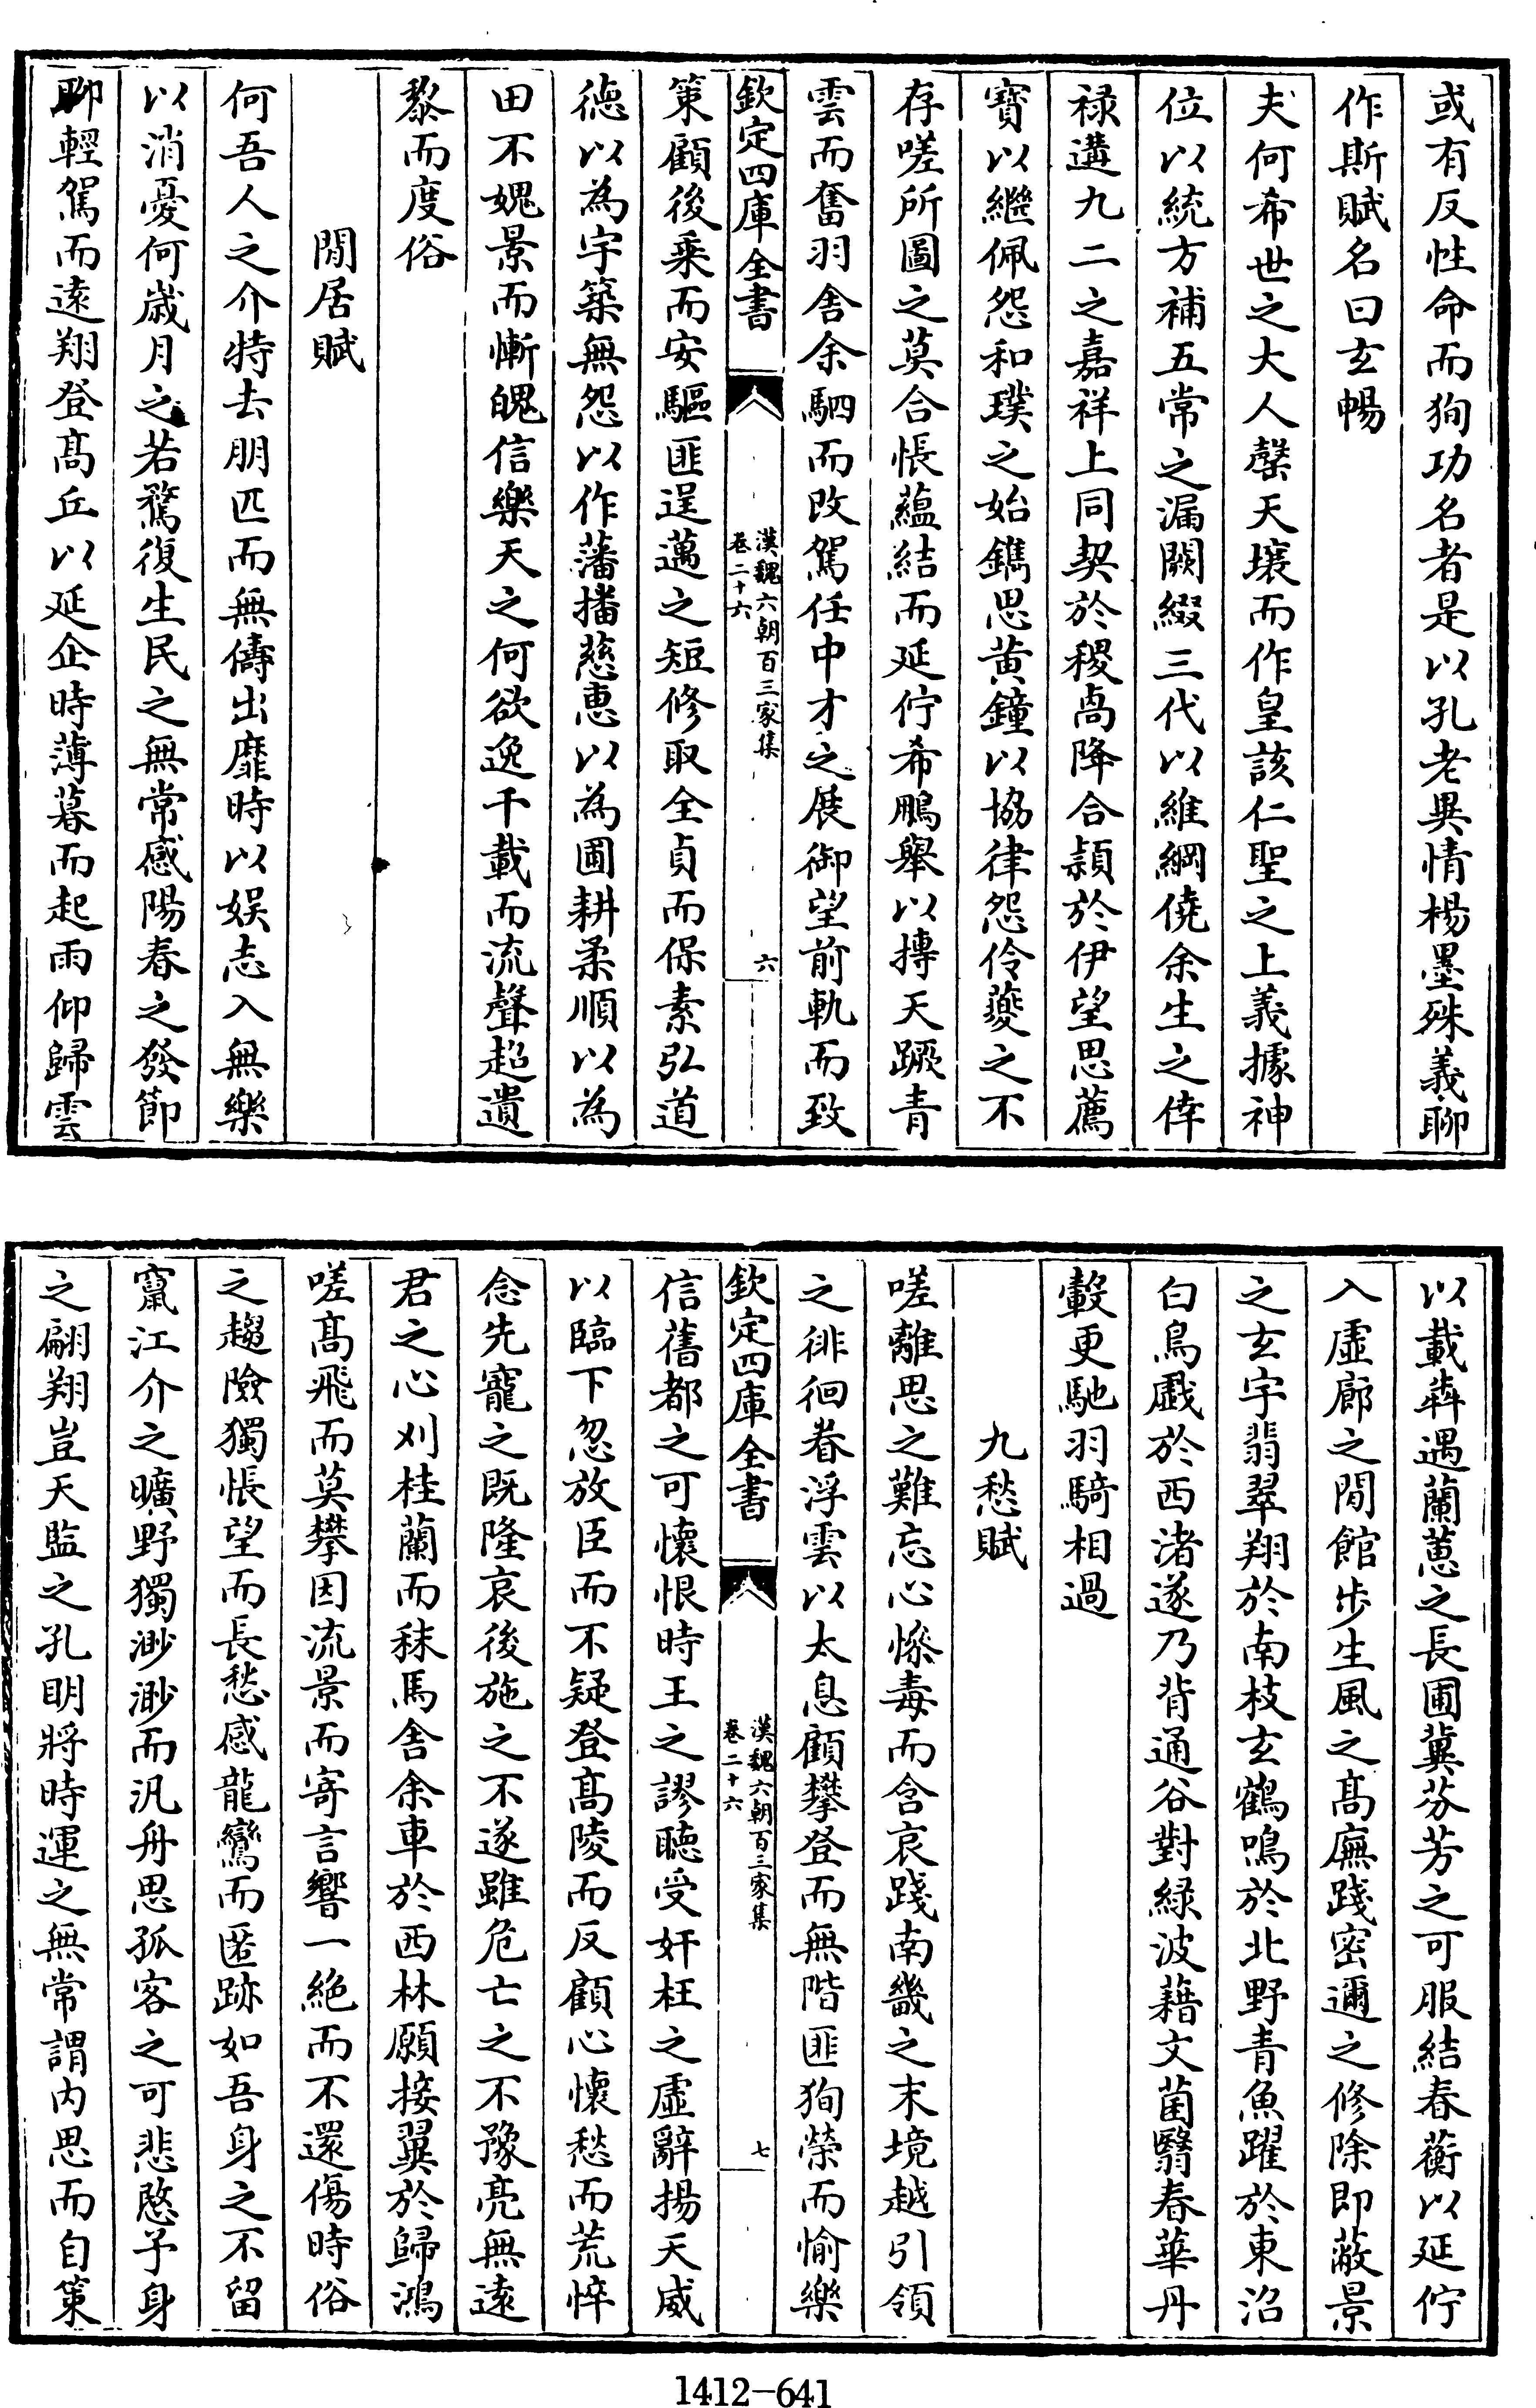 或有反性命而狥功名者是以孔老異情楊墨殊義聊
作斯賦名曰玄暢
夫何希世之大人罄天壤而作皇該仁聖之上義據神
位以統方補五常之漏闕綴三代以維綱僥余生之倖
禄遘九二之嘉祥上同契於稷卨降合頴於伊望思薦
寳以繼佩怨和璞之始鐫思黄鐘以協律怨伶夔之不
存嗟所圖之莫合悵蘊結而延佇希鵬舉以摶天蹶青
雲而奮羽舍余駟而改駕任中才之展御望前軌而致
欽定四庫全書
漢魏六朝百三家集
卷二十六
六
策顧後乘而安驅匪逞邁之短修取全貞而保素弘道
徳以為宇築無怨以作藩播慈惠以為圃耕柔順以為
田不媿景而慚魄信樂天之何欲逸千載而流聲超遺
黎而度俗
閒居賦
何吾人之介特去朋匹而無儔出靡時以娱志入無樂
以消憂何嵗月之若騖復生民之無常感陽春之發節
聊輕駕而逺翔登髙丘以延企時薄暮而起雨仰歸雲
以載奔遇蘭蕙之長圃冀芬芳之可服結春蘅以延佇
入虚廊之閒館步生風之髙廡踐密邇之修除即蔽景
之玄宇翡翠翔於南枝玄鶴鳴於北野青魚躍於東沼
白鳥戲於西渚遂乃背通谷對緑波藉文茵翳春華丹
轂更馳羽騎相過
九愁賦
嗟離思之難忘心慘毒而含哀踐南畿之末境越引領
之徘徊眷浮雲以太息顧攀登而無階匪狥榮而愉樂
欽定四庫全書
漢魏六朝百三家集
卷二十六
七
信舊都之可懷恨時王之謬聴受奸枉之虚辭揚天威
以臨下忽放臣而不疑登髙陵而反顧心懷愁而荒悴
念先寵之既隆哀後施之不遂雖危亡之不豫亮無逺
君之心刈桂蘭而秣馬舍余車於西林願接翼於歸鴻
嗟髙飛而莫攀因流景而寄言響一絶而不還傷時俗
之趨險獨悵望而長愁感龍鸞而匿跡如吾身之不留
竄江介之曠野獨渺渺而汎舟思孤客之可悲愍予身
之翩翔豈天監之孔明將時運之無常謂内思而自策
1412-641